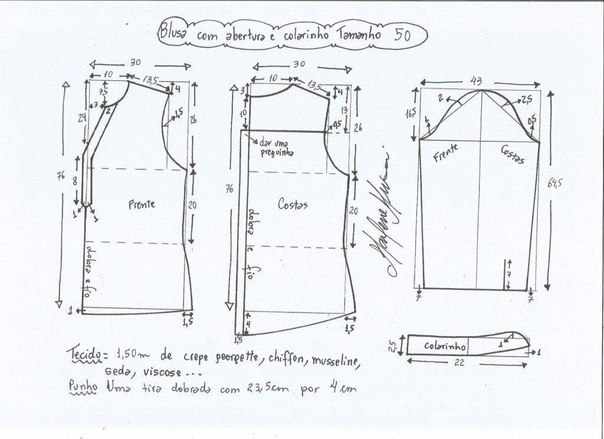 Blusa com abertura e colarinho Tamanho 50
30
10
13,5
4
7,5
7
2
24
0,5
26
76
8
20
1
1
Frente
dobra e fio
1
1,5
30
10
13,5
3
4
10
13
0,5
26
dar uma
preguinha
76
Costas
20
dobra e fio
1,5
1,5
43
16,5
2
2,5
1
0,5
Frente
Costas
64,5
7
7
7
2,5
colarinho
1
1
22
Tecido = 1,50m de crepe georgette, chiffon, musseline,
seda, viscose ...
Punho Uma tira dobrada com 23,5cm por 4 cm